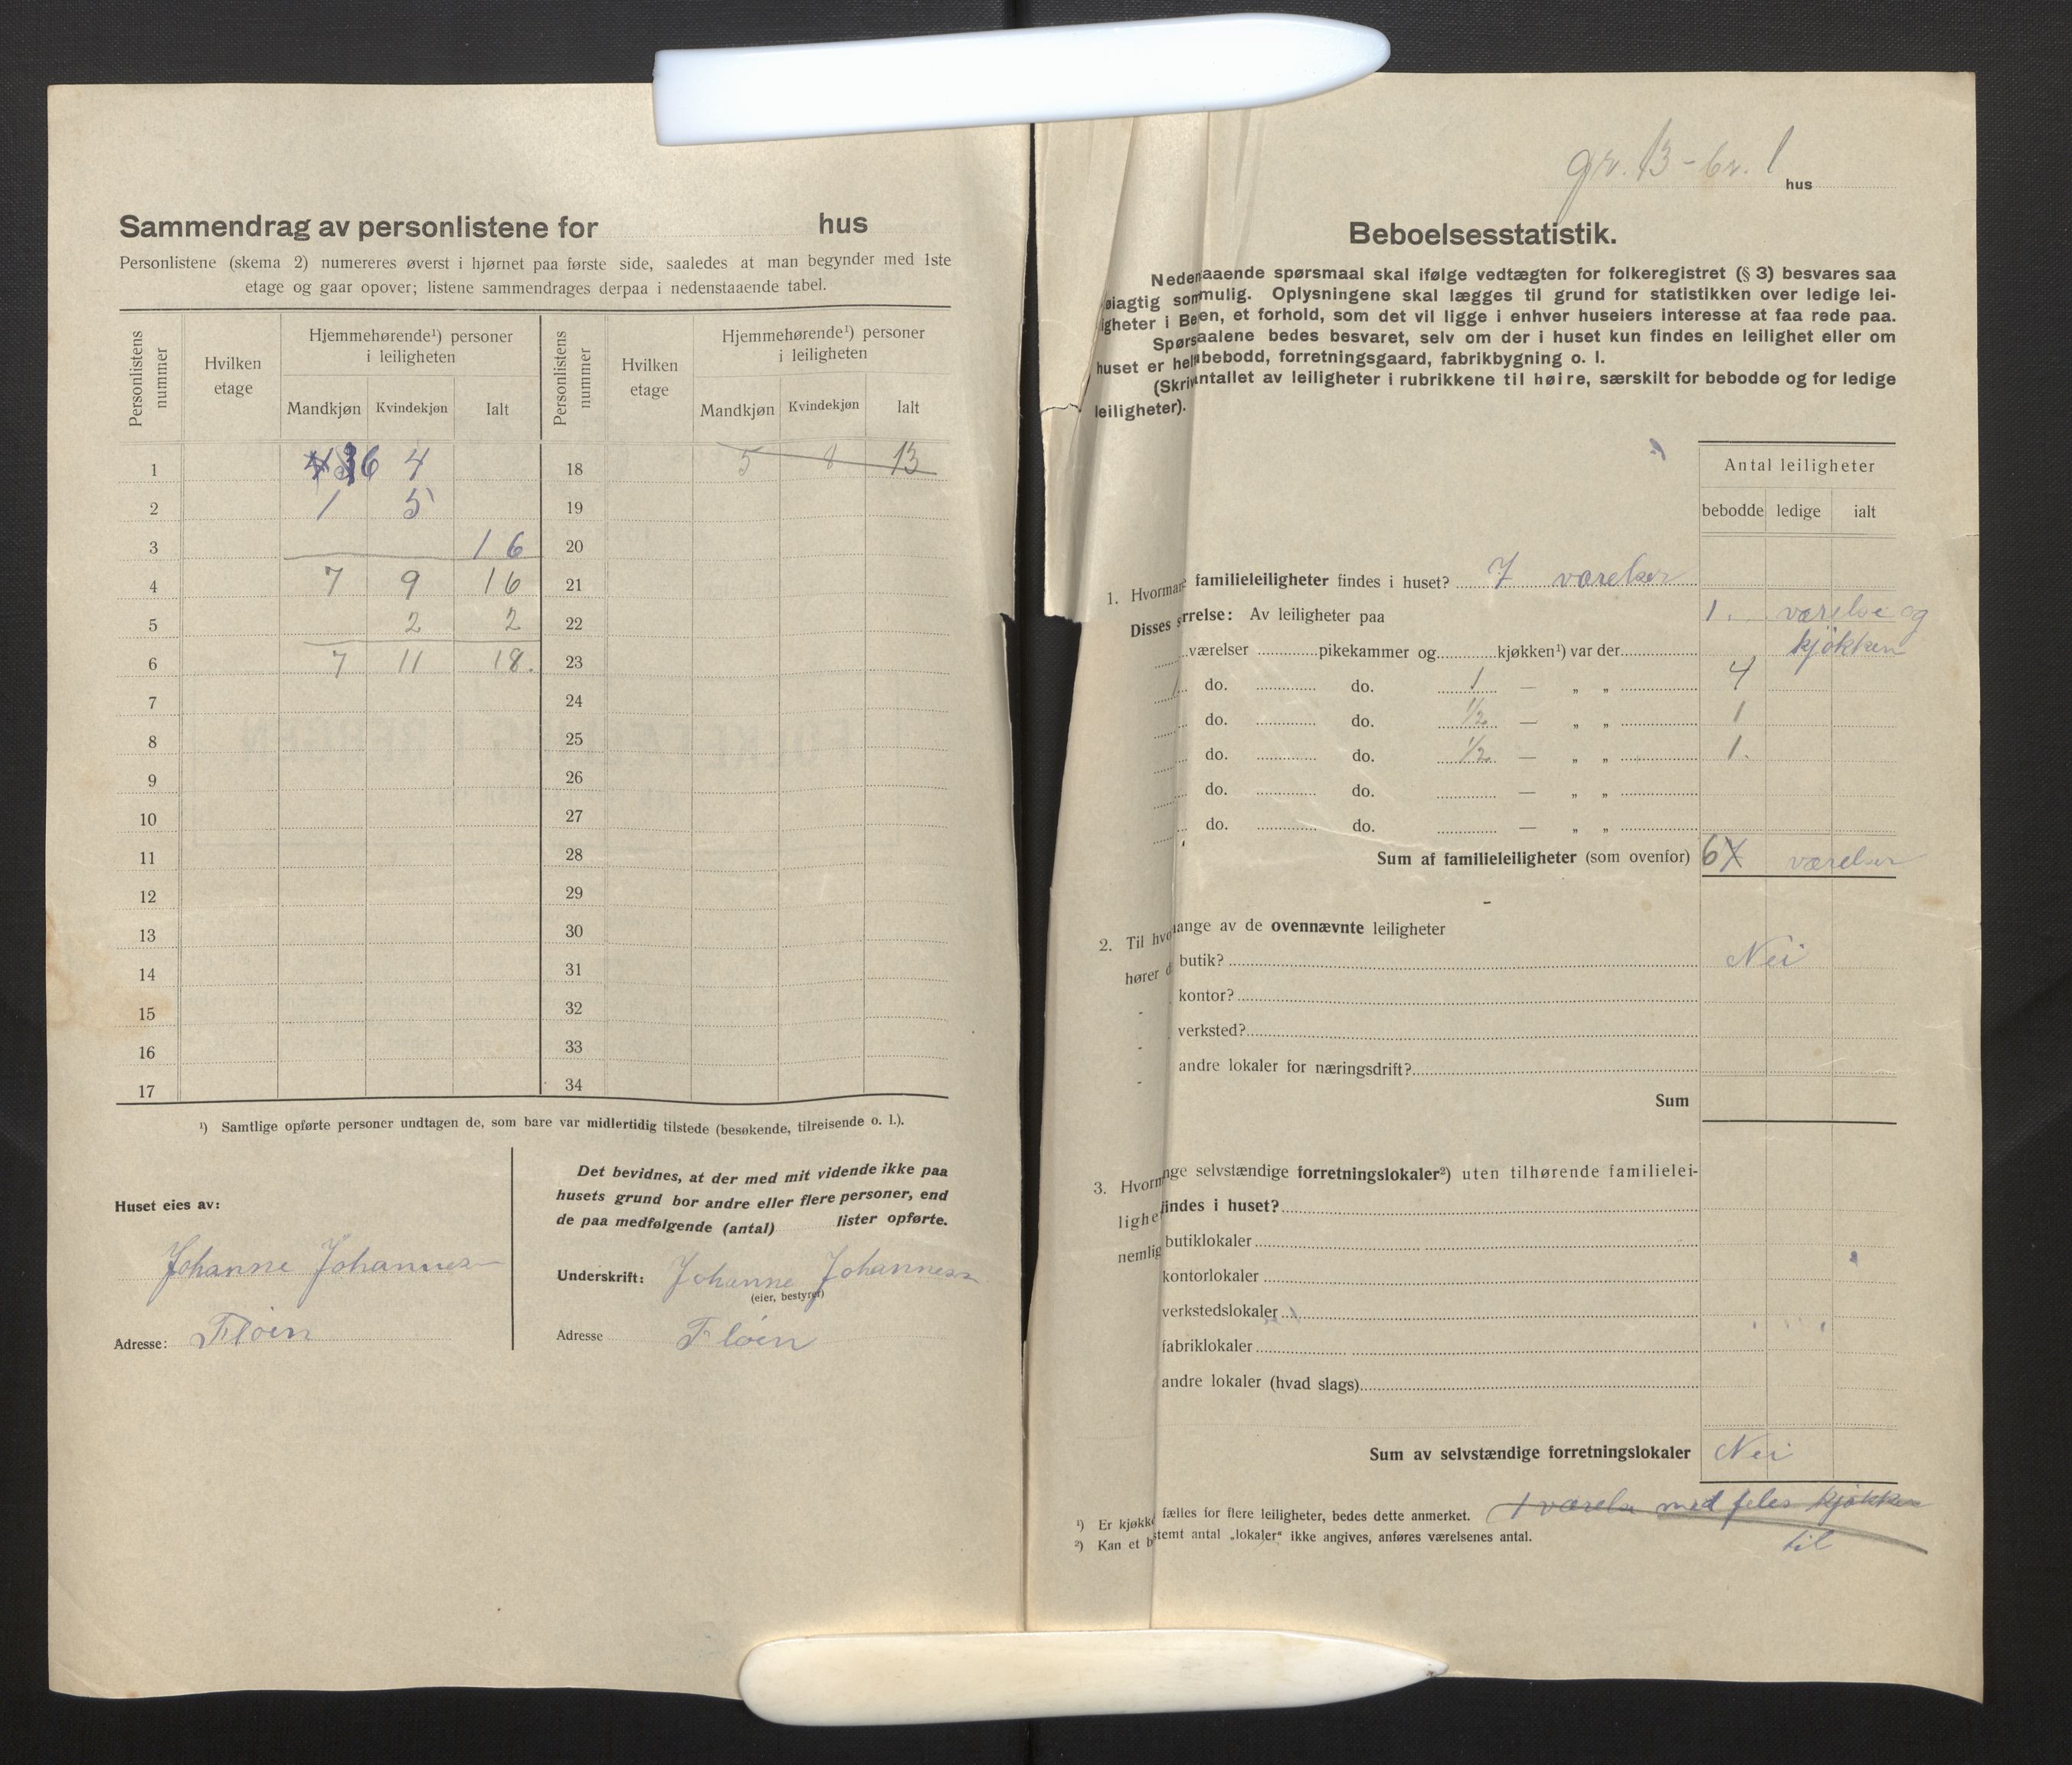 Sammendrag av personlistene for hus
Personlistene (skema 2) numereres øverst i hjørnet paa første side, saaledes at man begynder med 1ste
etage og gaar opover; listene sammendrages derpaa i nedenstaaende tabel.
Personlistens nummer | Hvilken etage | Hjemmehørende¹) personer i leiligheten | Personlistens nummer | Hvilken etage | Hjemmehørende¹) personer i leiligheten
Mandkjøn Kvindekjøn Ialt Mandkjøn Kvindekjøn Ialt
1 6 4 18 5 8 13
2 1 5 19
3 16 20
4 7 9 16 21
5 2 2 22
6 7 11 18. 23
7 24
8 25
9 26
10 27
11 28
12 29
13 30
14 31
15 32
16 33
17 34
¹) Samtlige opførte personer undtagen de, som bare var midlertidig tilstede (besøkende, tilreisende o. l.).
Huset eies av:
Johanne Johannes
Adresse: Fløien
Det bevidnes, at der med mit vidende ikke paa
husets grund bor andre eller flere personer, end
de paa medfølgende (antal) lister opførte.
Underskrift: Johanne Johanness
(eier, bestyrer)
Adresse Fløien
gr. 13 - br. 1 hus
Beboelsesstatistik.
Nedenaaende spørsmaal skal ifølge vedtægten for folkeregistret (§ 3) besvares saa
øiagtig sommulig. Oplysningene skal lægges til grund for statistikken over ledige lei-
igheter i Been, et forhold, som det vil ligge i enhver huseiers interesse at faa rede paa.
Spørsaalene bedes besvaret, selv om der i huset kun findes en leilighet eller om
huset er helbebodd, forretningsgaard, fabrikbygning o. l.
(Skrivntallet av leiligheter i rubrikkene til høire, særskilt for bebodde og for ledige
leiligheter).
Antal leiligheter
bebodde ledige ialt
1. Hvormange familieleiligheter findes i huset? 7 værelser
Disses srrelse: Av leiligheter paa 1. værelse og
værelser pikekammer og kjøkken¹) var der kjøkken
1 do. do. 1 — „ „ 4
do. do. 1/2 — „ „ 1
do. do. 1/2 — „ „ 1.
do. do. — „ „
do. do. — „ „
Sum af familieleiligheter (som ovenfor) 6 7 værelser
2. Til hvoange av de ovennævnte leiligheter
hører d butik? Nei
- kontor?
- verksted?
- andre lokaler for næringsdrift?
Sum
3. Hvormnge selvstændige forretningslokaler²) uten tilhørende familielei-
lighe findes i huset?
nemlig butiklokaler
kontorlokaler
verkstedslokaler
fabriklokaler
andre lokaler (hvad slags)
Sum av selvstændige forretningslokaler Nei
¹) Er kjøkke fælles for flere leiligheter, bedes dette anmerket. 1 værelse med feles kjøkken
²) Kan et bstemt antal „lokaler“ ikke angives, anføres værelsenes antal. til